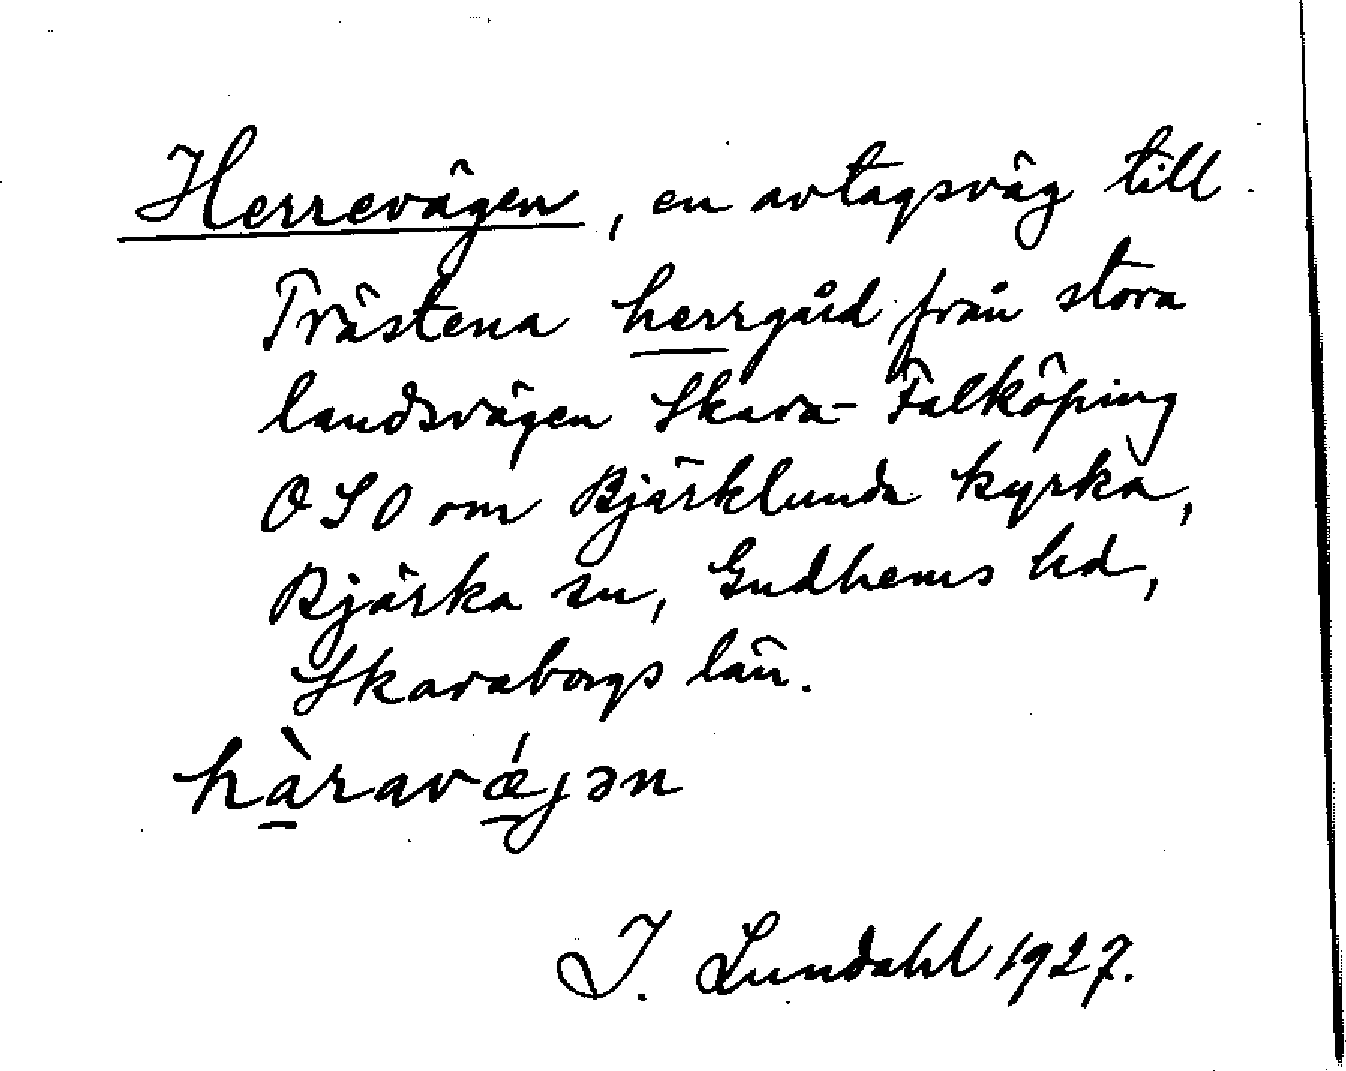 Herrevägen, en avtagsväg till
Trästena herrgård från stora
landsvägen Skara-Falköping
OSO om Bjärklunda kyrka,
Bjärka sn, Gudhems hd,
Skaraborgs län.
hàravǽjən
I. Lundahl 1927.